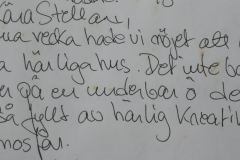 ära Stellan,
na vecka hade vi nöjet att
a härliga hus. Det inte ba
en underbar ö de
så fyllt av härlig Kreativ